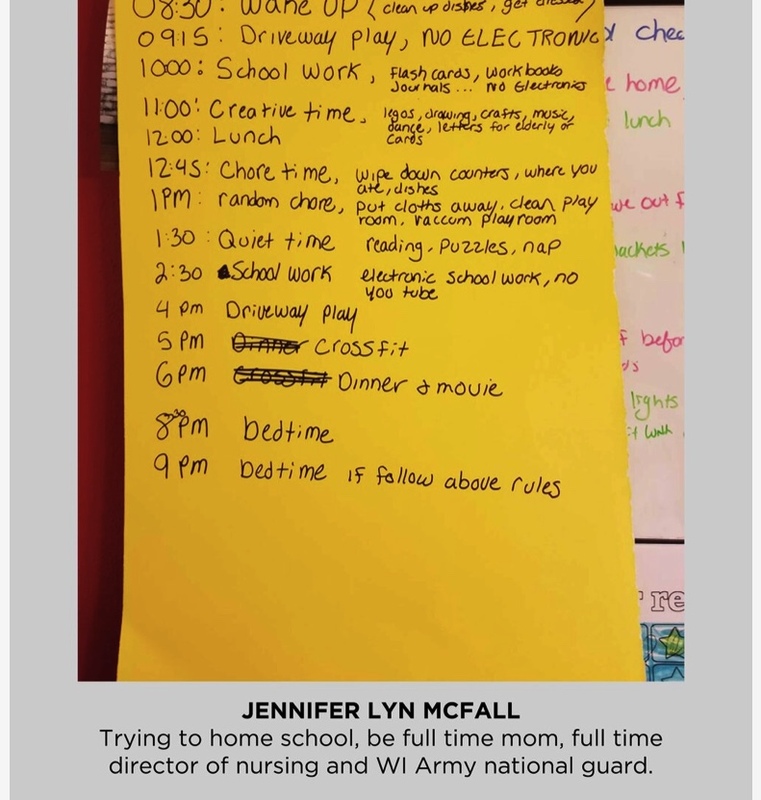 08:30: Wake UP ( clean up dishes, get dressed)
0915: Driveway play, NO ELECTRONIC
1000: School work, flash cards, workbooks
Journals... No Electronics
11:00: Creative time, legos, drawing, crafts, music,
dance, letters for elderly or
cards
12:00: Lunch
12:45: Chore time, wipe down counters, where you
ate, dishes
1PM: random chore, put cloths away, clean play
room, vaccum playroom
1:30: Quiet time reading, puzzles, nap
2:30 School work electronic school work, no
you tube
4 pm Driveway play
5 pm Dinner Crossfit
6pm Crossfit Dinner & movie
8:30pm bedtime
9 pm bedtime if follow above rules
chec
home
lunch
we out f
jackets
f befor
ds
lights
it walk
re
JENNIFER LYN MCFALL
Trying to home school, be full time mom, full time
director of nursing and WI Army national guard.